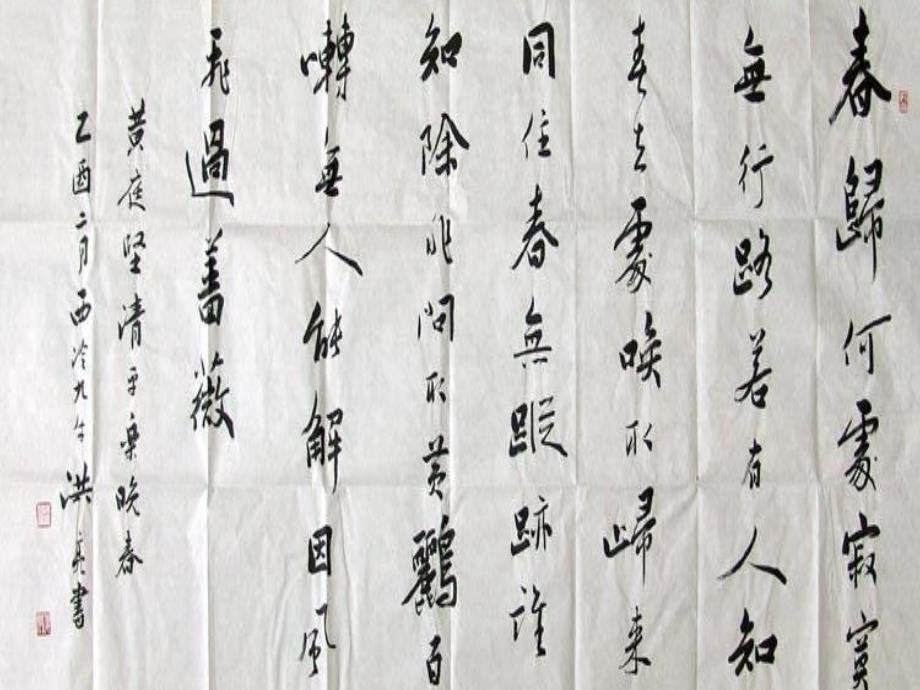 春歸何處寂寞
無行路若有人知
春去處喚取歸來
同住春無蹤跡誰
知除非問取黄鸝百
囀無人能解因風
飛過薔薇
黄庭坚清平樂晚春
乙酉二月西泠九年洪亮書